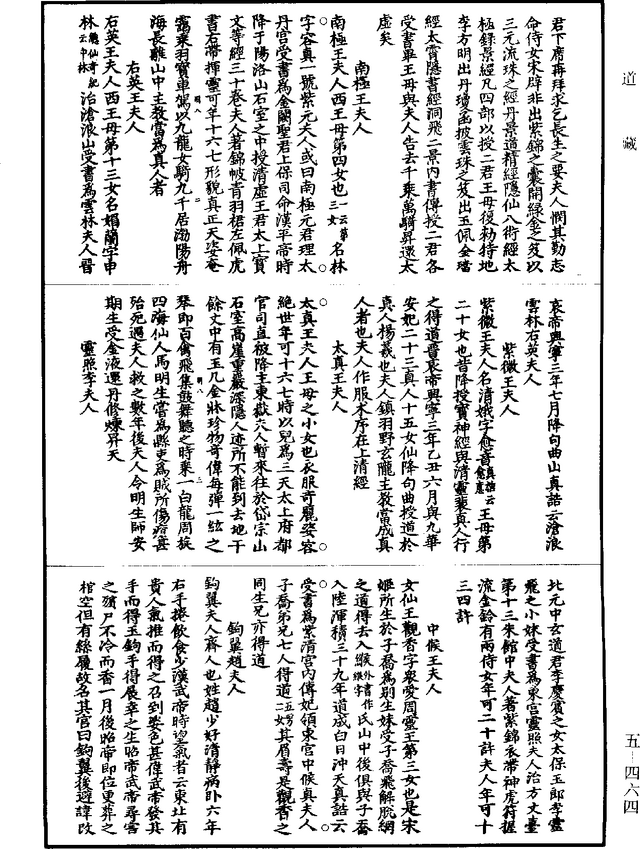 道藏
君下席再拜求乞長生之要夫人憫其勤志
命侍女宋辟非出紫錦之囊開綠金之笈以
三元流珠之經丹景道精經隱仙八術經太
極錄景經凡四部以授二君王母復勑侍女
李方明出丹瓊之函披雲珠之笈出玉佩金璫
經太霄隱書經洞飛二景內書傳授二君各
受書畢王母與夫人告去千乘萬騎昇還太
虛矣
南極王夫人
南極王夫人西王母第四女也一云第三女名林
字容真一號紫元夫人或曰南極元君理太
丹宮受書爲金闕聖君上保司命漢平帝時
降于陽洛山石室之中授清虛王君太上寶
文等經三十卷夫人著錦帔青羽裙左佩虎
書右帶揮靈可年十六七形貌真正天姿奄
靄乘羽寶車駕以九龍女騎九千居渤陽丹
海長離山中主教當爲真人者
右英王夫人
右英王夫人西王母第十三女名媚蘭字申
林治滄浪山受書爲雲林夫人晉
哀帝興寧三年七月降句曲山真誥云滄浪
雲林右英夫人
紫微王夫人
紫微王夫人名清娥字愈音王母第
二十女也昔降授寶神經與清靈裴真人行
之得道晉哀帝興寧三年乙丑六月與九華
安妃二十三真人十五女仙降句曲授道於
真人楊羲也夫人鎮羽野玄壠主教當成真
人者也夫人作服术序在上清經
太真王夫人
太真王夫人王母之小女也衣服奇麗姿容
絕世年可十六七時以兒爲三天太上府都
官司直被降主東嶽夫人暫來往於岱宗山
石室高崖重巖深隱人迹所不能到去地千
餘丈中有玉几金牀珍物奇偉每彈一絃之
琴即百禽飛集鼓舞聽之時乘一白龍周旋
四海仙人馬明生當爲縣吏爲賊所傷殆甚
殆死遇夫人救之數年後夫人令明生師安
期生受金液還丹修煉昇天
靈照李夫人
北元中玄道君李慶賓之女太保玉郎李靈
飛之小妹受書爲東宮靈照夫人治方丈臺
第十三朱館中夫人著紫錦衣帶神虎符握
流金鈴有兩侍女年可二十許夫人年可十
三四許
中候王夫人
女仙王觀香字衆愛周靈王第三女也是宋
姬所生於子喬爲別生妹受子喬飛解脫網
之道得去入緱氏山中後俱與子喬
入陸渾積三十九年道成白日沖天真誥云
受書爲紫清宮內傳妃領東宮中候真夫人
子喬弟兄七人得道五男二女其眉壽是觀香之
同生兄亦得道
鉤翼趙夫人
鉤翼夫人齊人也姓趙少好清靜病臥六年
右手捲飲食少漢武帝時望氣者云東北有
貴人氣推而得之召到姿色甚偉武帝發其
手而得玉鉤手得展幸之生昭帝武帝尋害
之殯尸不冷而香一月後昭帝即位更葬之
棺空但有絲履故名其宮曰鉤翼後避諱改
五-四六四